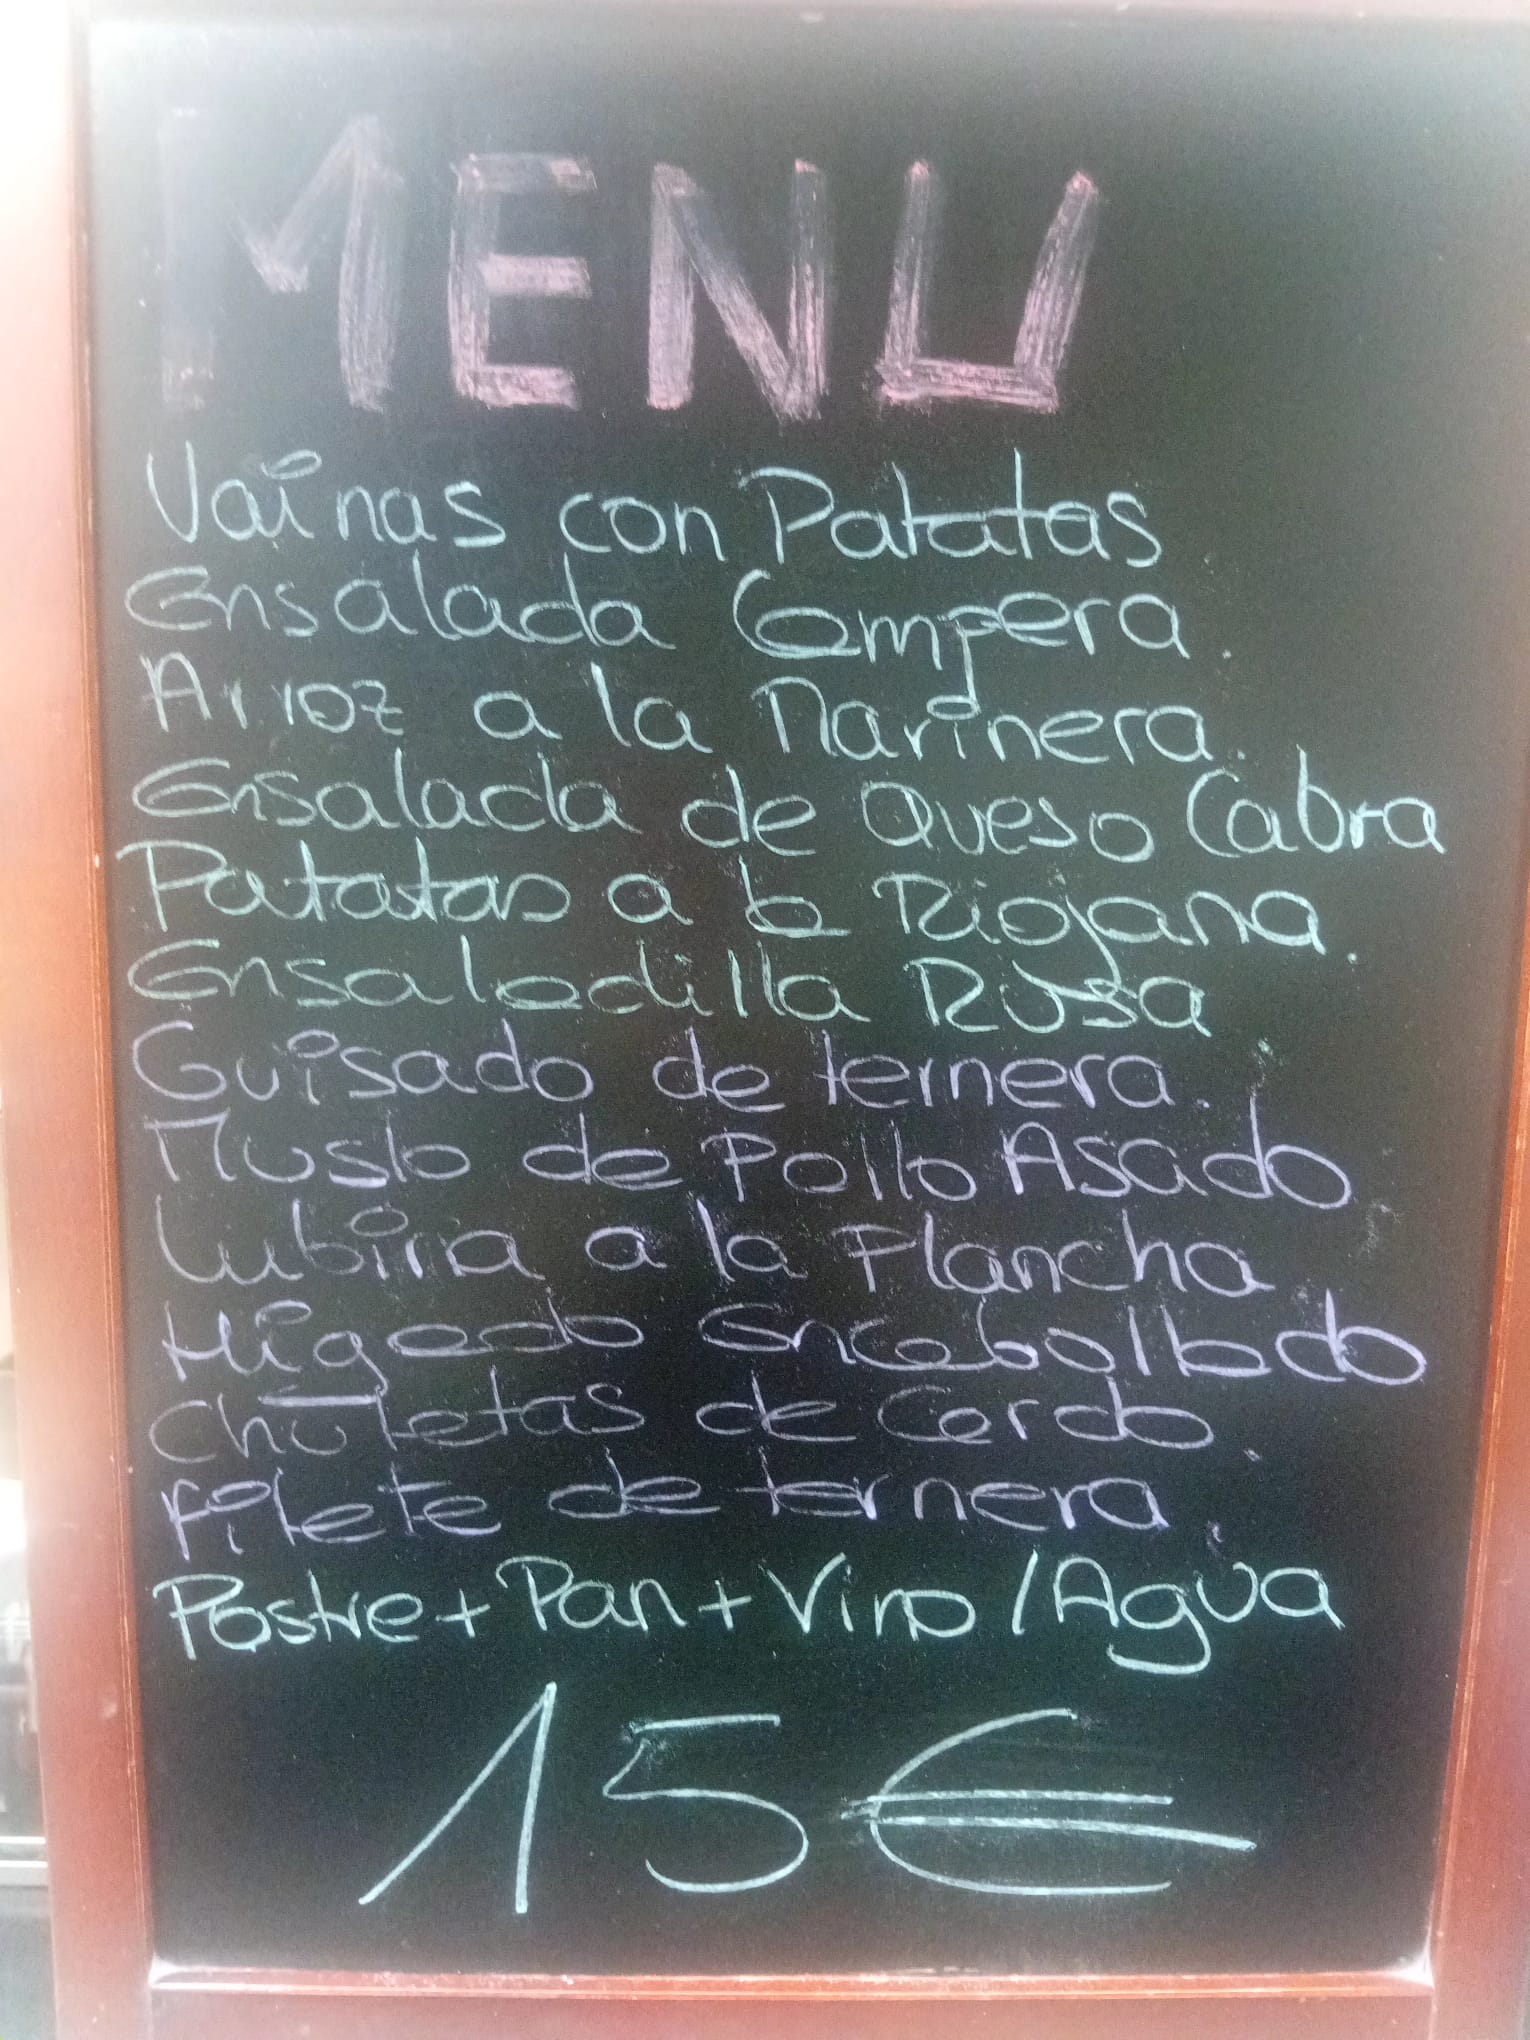 MENU
Vainas con Patatas
Ensalada Campera.
Arroz a la Marinera.
Ensalada de Queso Cabra
Patatas a la Riojana.
Ensaladilla Rusa
Guisado de ternera.
Muslo de Pollo Asado
Lubina a la Plancha
Higado Encebollado
Chuletas de Cerdo.
Filete de ternera.
Postre + Pan + Vino / Agua
15€